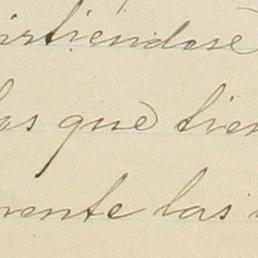 irtiendose
las que tien
mente las